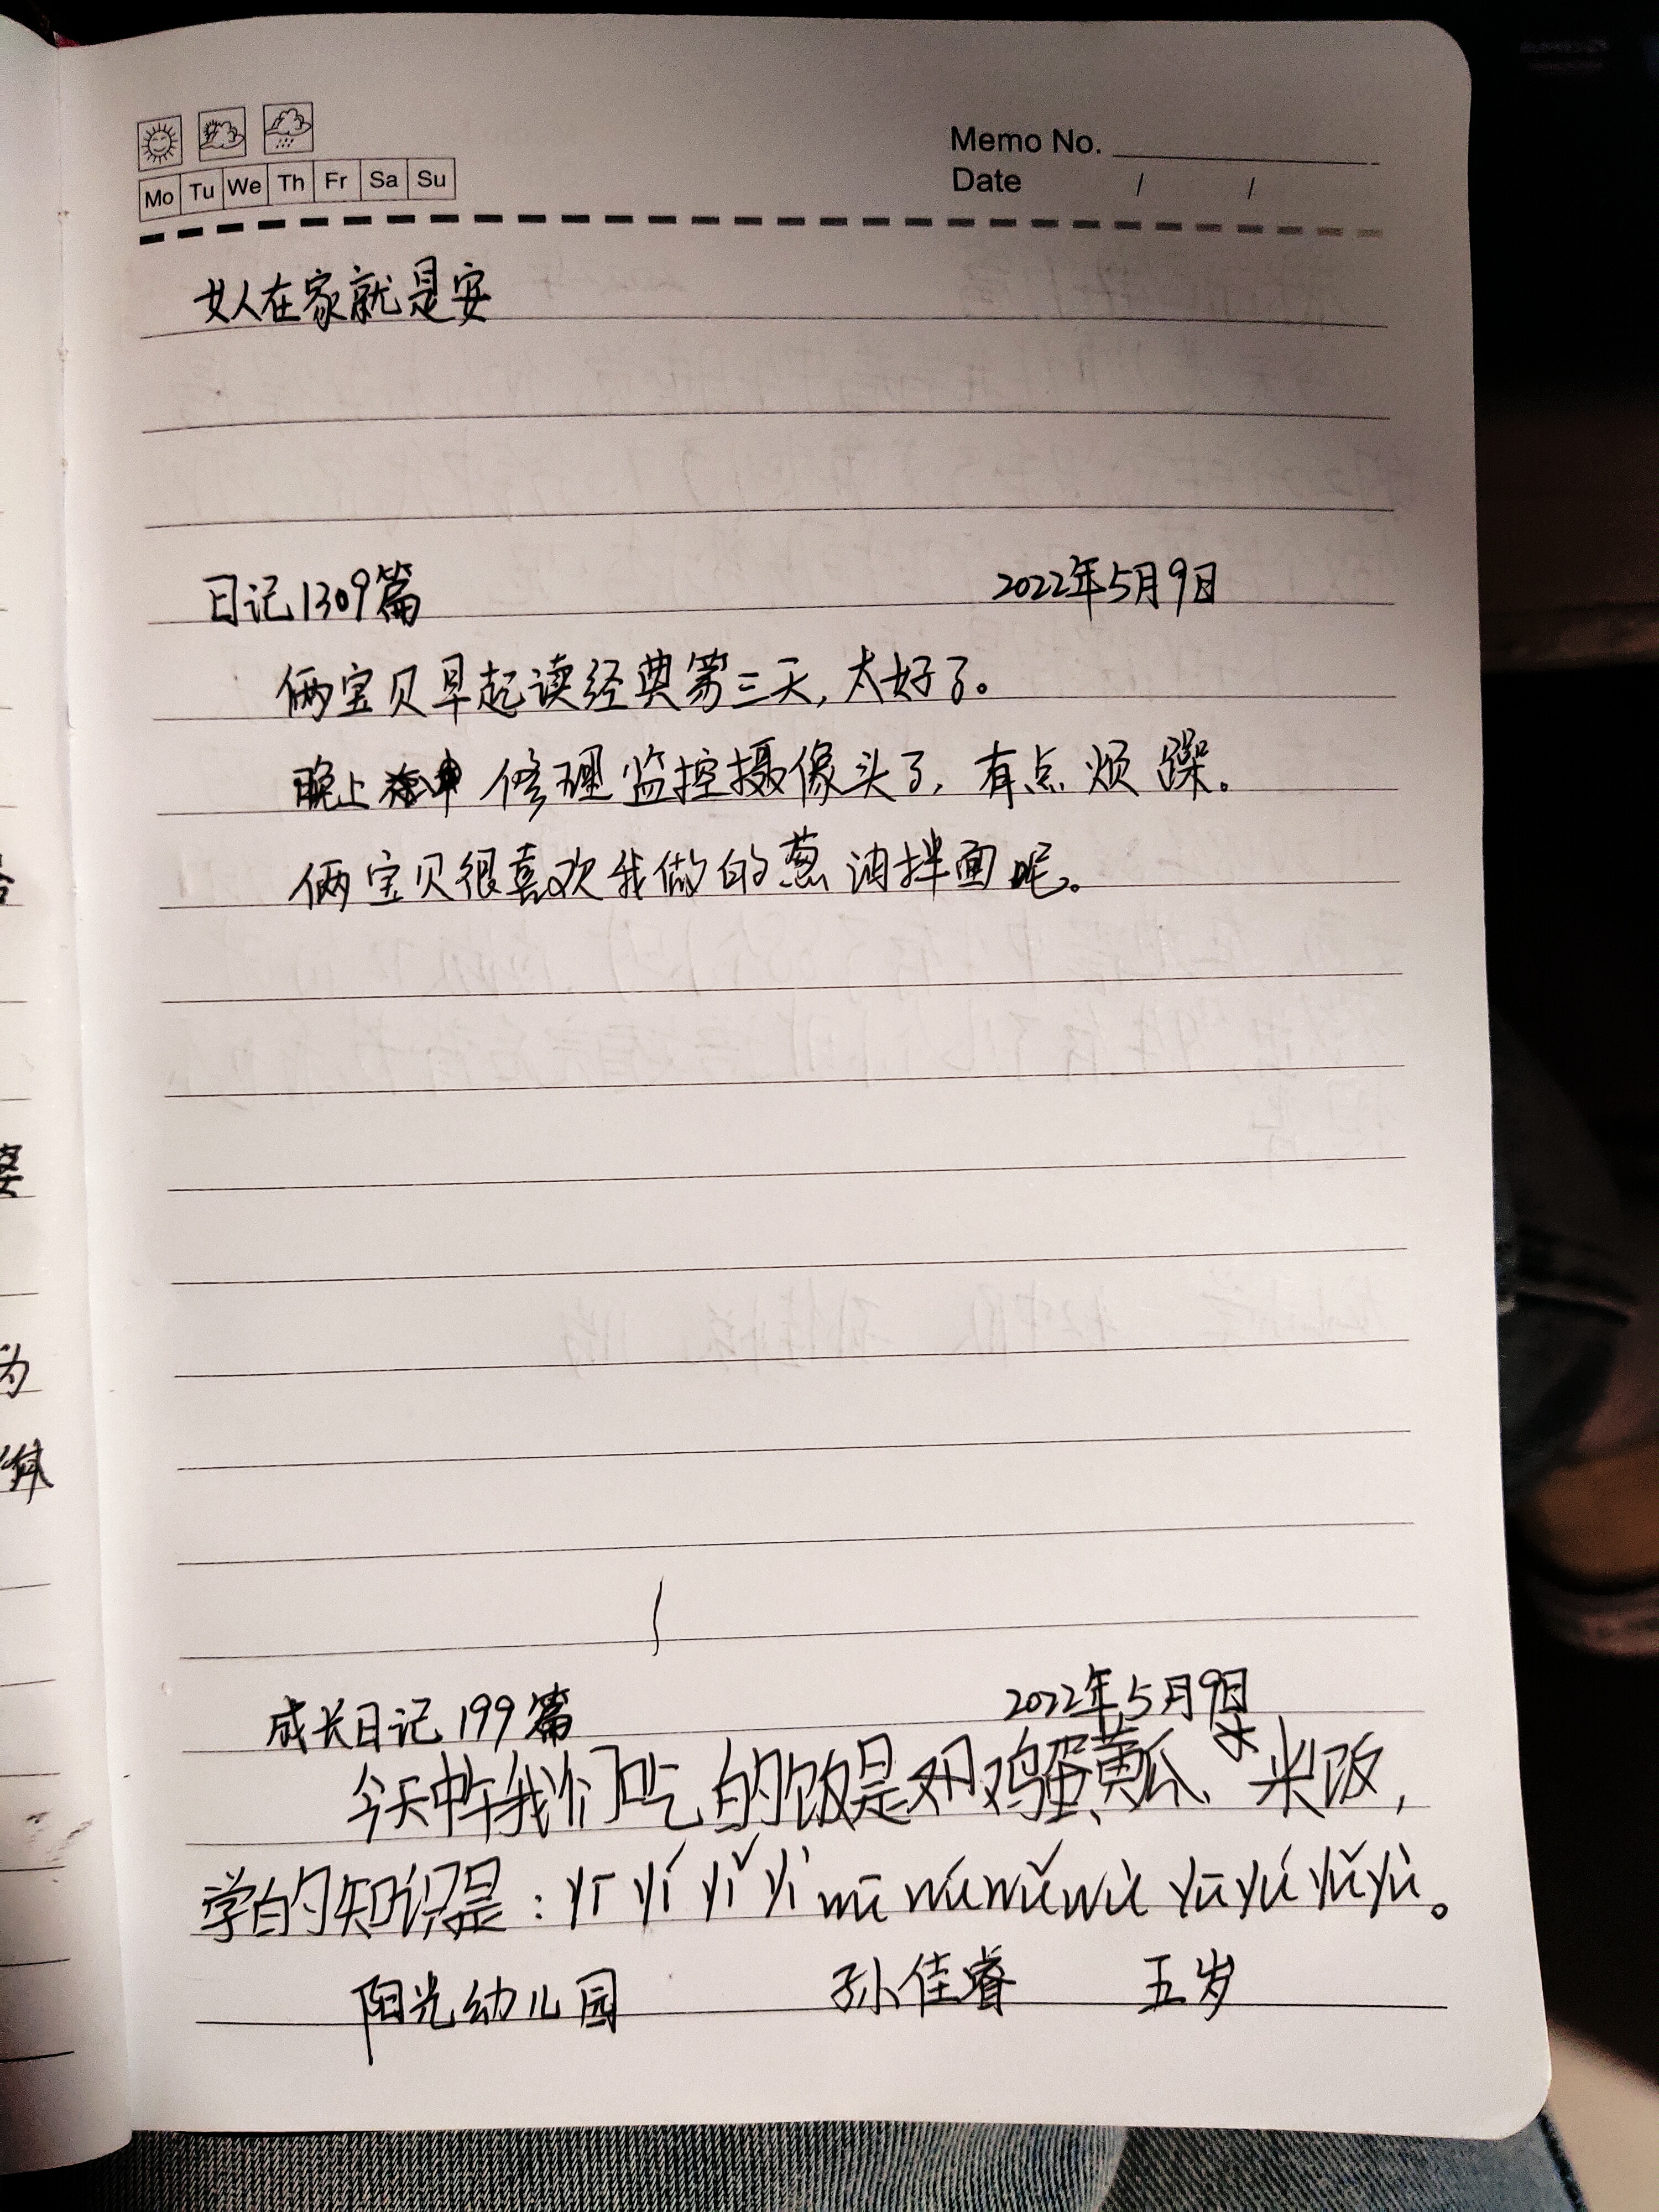 Mo Tu We Th Fr Sa Su
Memo No.
Date / /
女人在家就是安
日记1309篇 2022年5月9日
俩宝贝早起读经典第三天,太好了。
晚上 修理监控摄像头了,有点烦躁。
俩宝贝很喜欢我做的葱油拌面呢。
成长日记199篇 2022年5月9日
今天中午我们吃的饭是鸡蛋黄瓜、米饭,
学的知识是:yī yí yǐ yì wū wú wǔ wù yū yú yǔ yù。
阳光幼儿园 孙佳睿 五岁